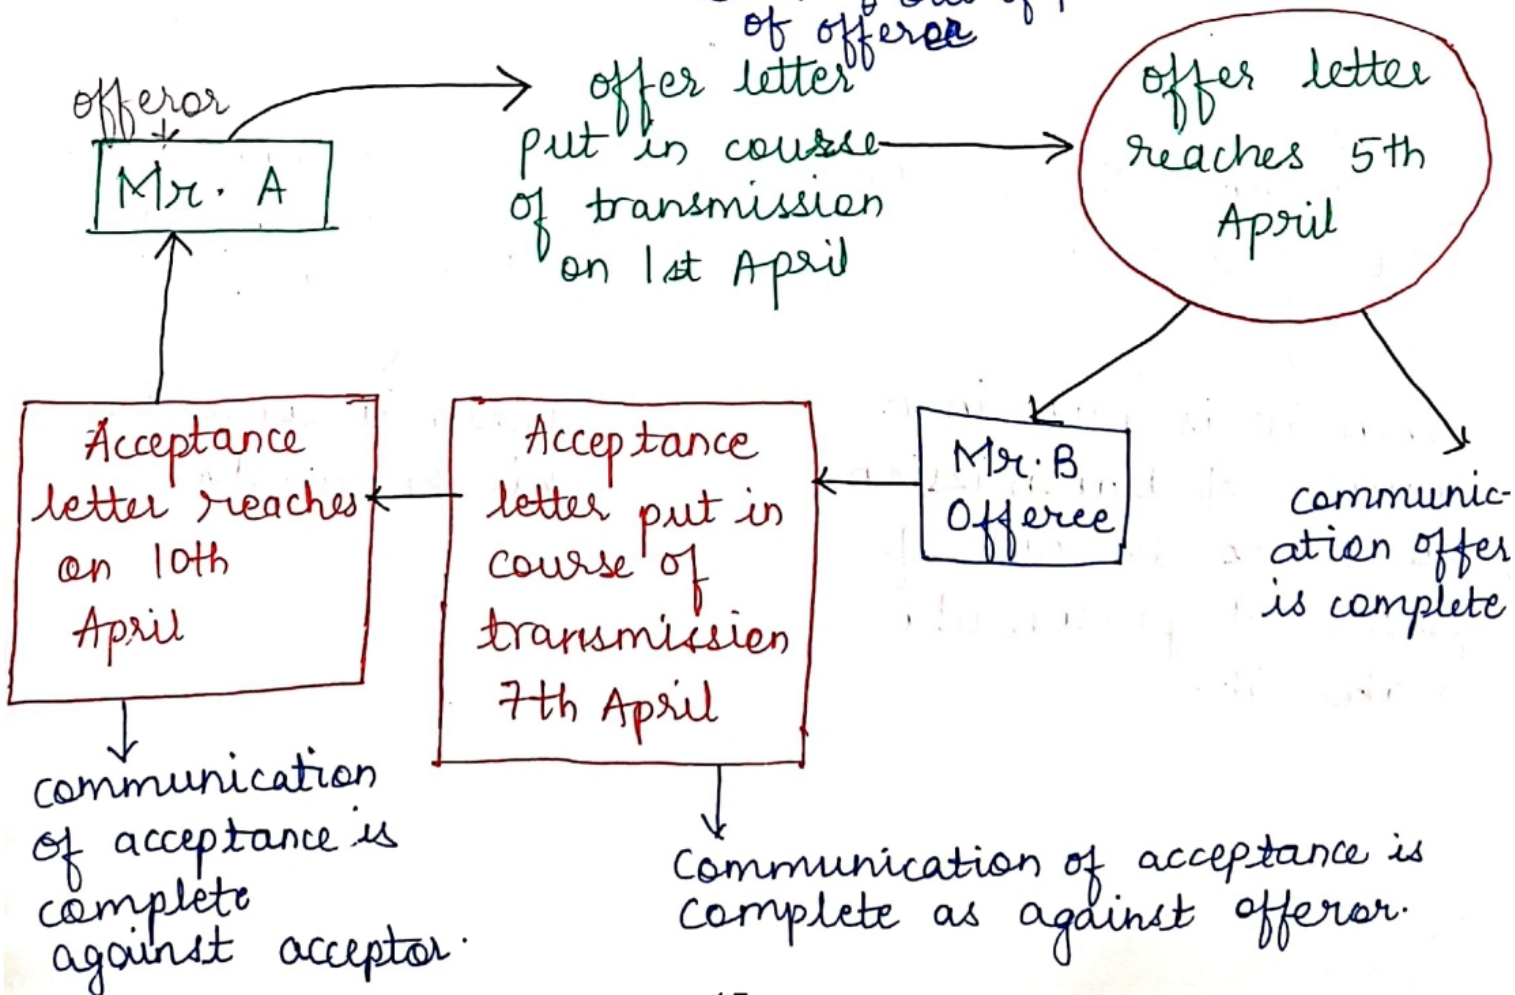 of offeree
offeror
Mr. A
offer letter
put in course
of transmission
on 1st April
offer letter
reaches 5th
April
Mr. B
Offeree
communic-
ation offer
is complete
Acceptance
letter put in
course of
transmission
7th April
Acceptance
letter reaches
on 10th
April
communication
of acceptance is
complete
against acceptor.
Communication of acceptance is
complete as against offeror.